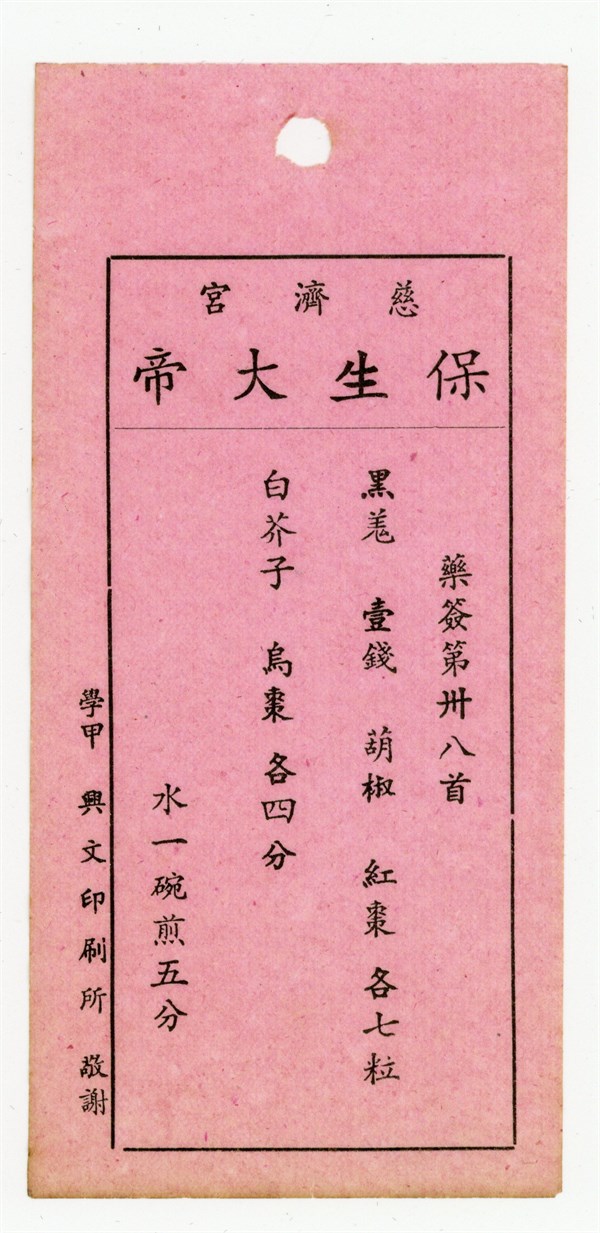 慈濟宮
保生大帝
藥簽第卅八首
黑羗 壹錢 葫椒 紅棗 各七粒
白芥子 烏棗 各四分
水一碗煎五分
學甲 興文印刷所 敬謝